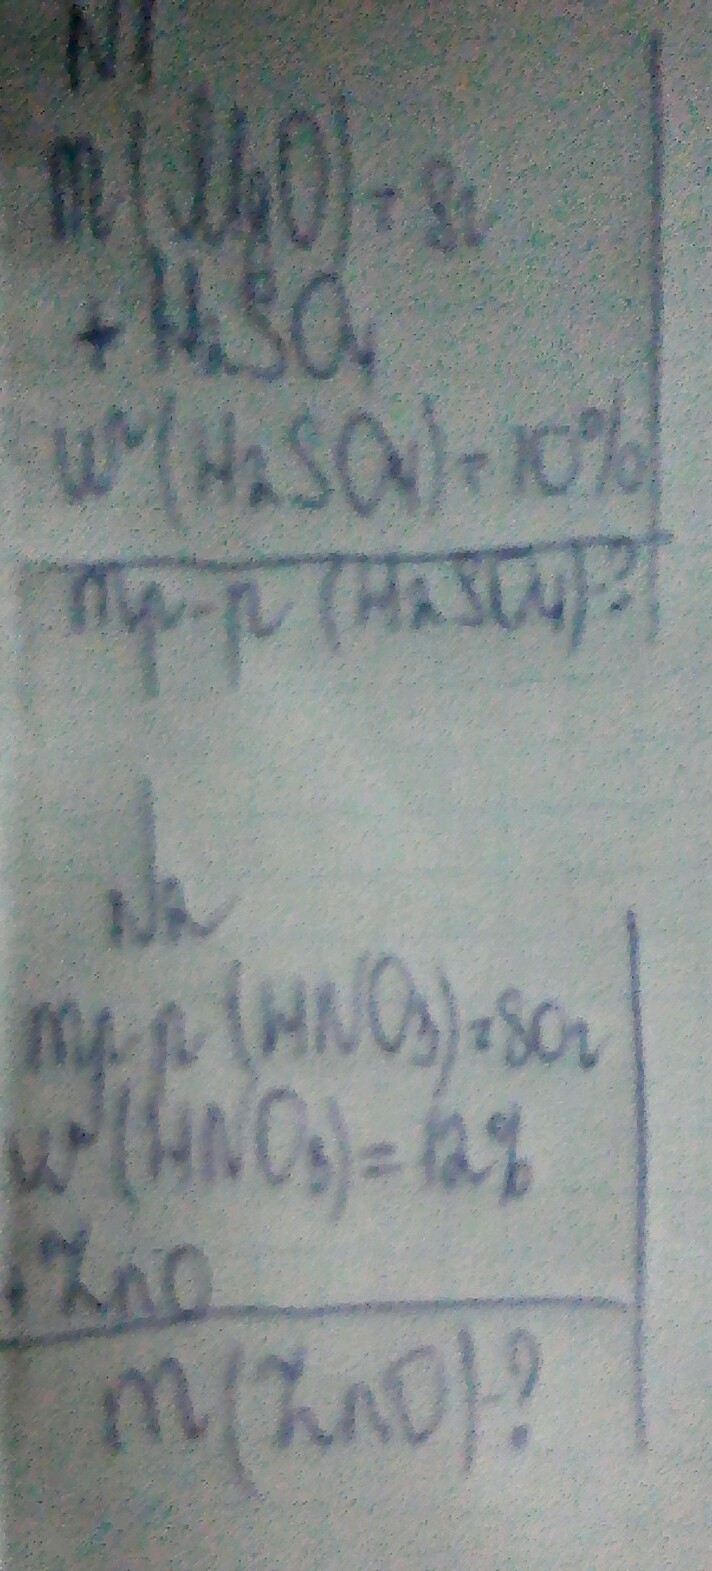 N1
m(MgO)=8г
+ H2SO4
w(H2SO4)=10%
mp-p (H2SO4)-?
N2
mp-p (HNO3)=80г
w(HNO3)=12%
+ZnO
m(ZnO)-?